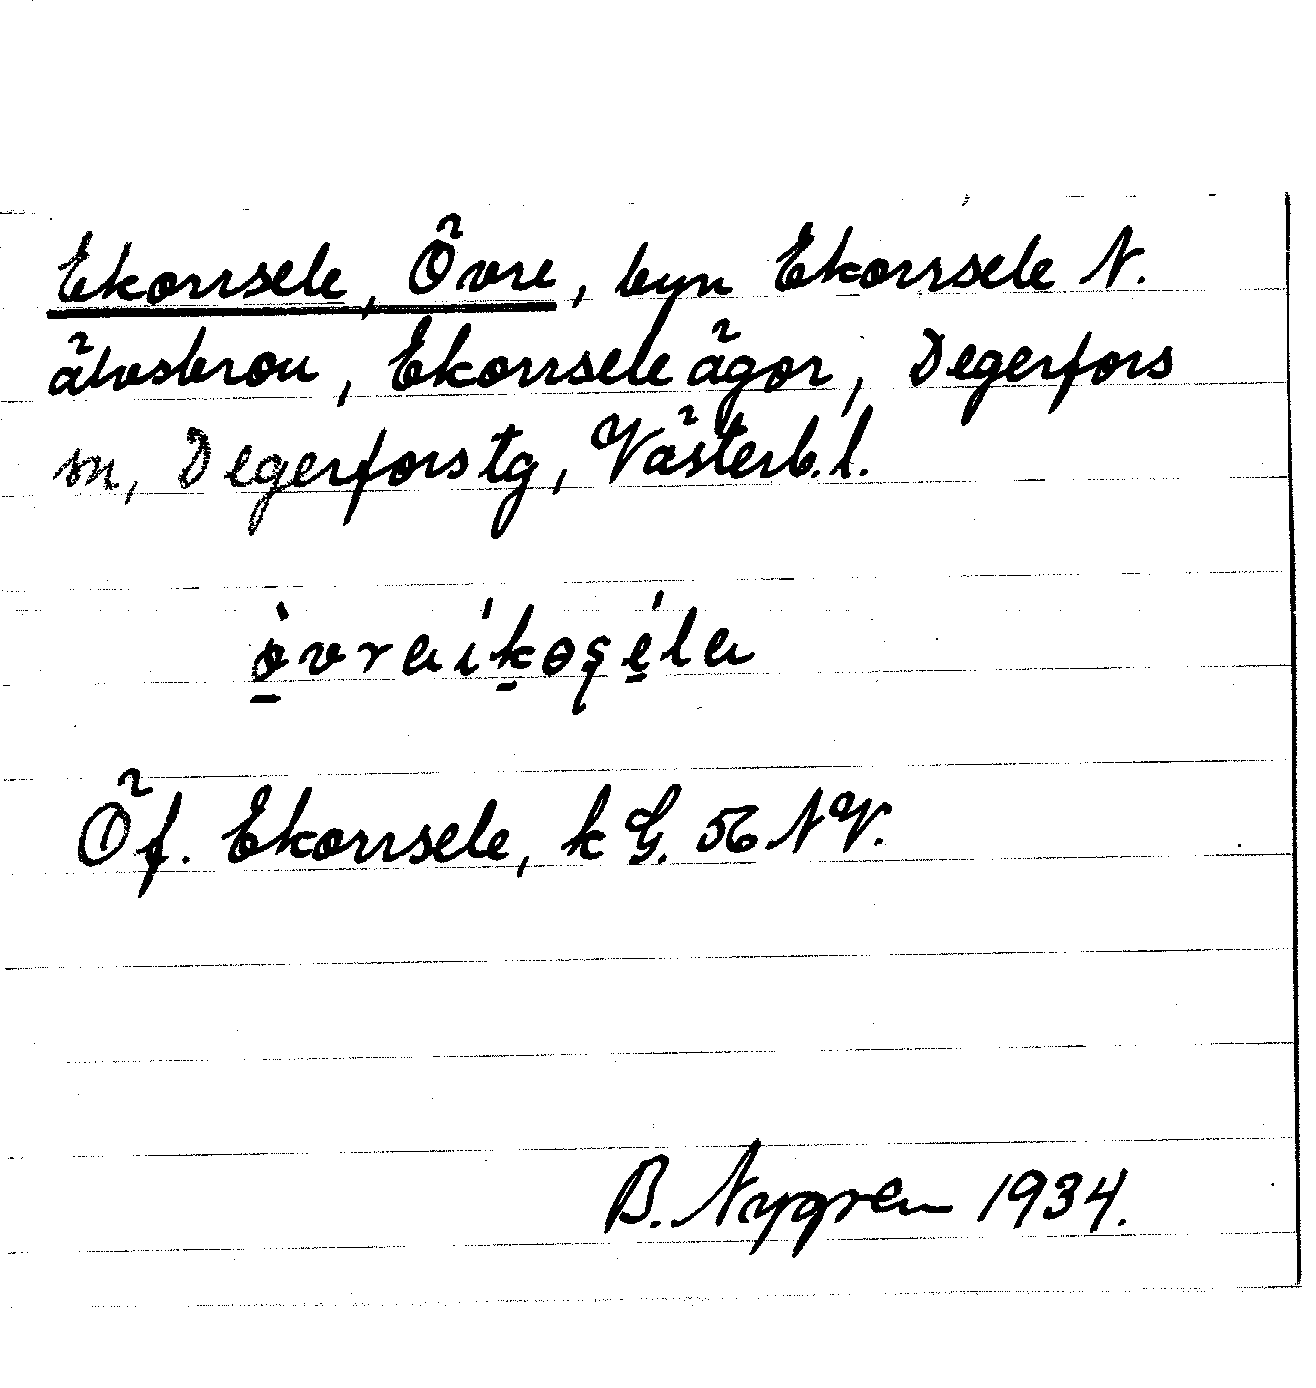 Ekorrsele, Övre, byn Ekorrsele N.
älvsbron, Ekorrsele ägor, Degerfors
sn, Degerfors tg, Västerb. l.
övraikosela
Öf. Ekorrsele, k G. 56 NV.
B. Nygren 1934.